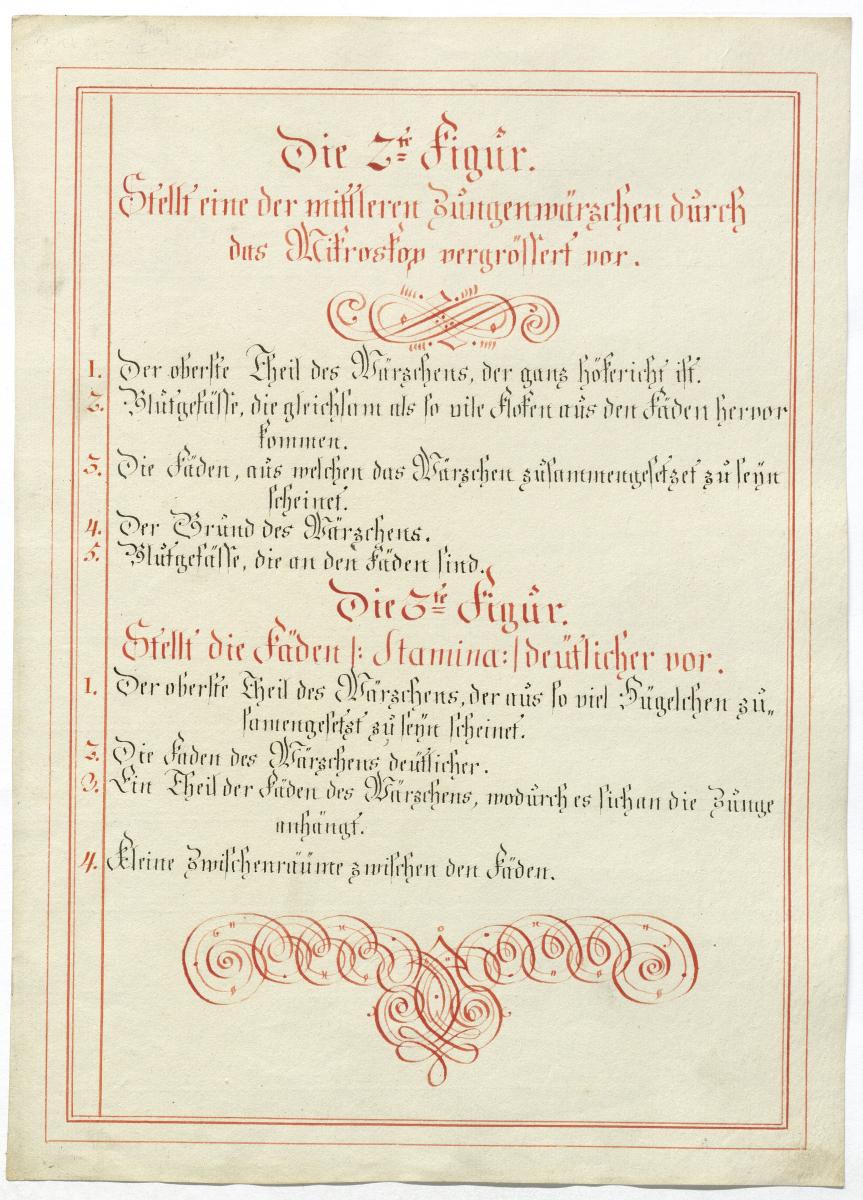 Die 2te Figur.
Stellt eine der mittleren Zungenwärzchen durch
das Mikroskop vergrössert vor.
1. Der oberste Theil des Wärzchens, der ganz hökericht ist.
2. Blutgefässe, die gleichsam als so vile Floken aus den Fäden hervor
kommen.
3. Die Fäden, aus welchen das Wärzchen zusammengesetzet zu seyn
scheinet.
4. Der Grund des Wärzchens.
5. Blutgefässe, die an den Fäden sind.
Die 3te Figur.
Stellt die Fäden /: Stamina :/ deütlicher vor.
1. Der oberste Theil des Wärzchens, der aus so viel Hügelchen zu„
samengesetzt zu seyn scheinet.
2. Die Faden des Wärzchens deütlicher.
3. Ein Theil der Fäden des Wärzchens, wodurch es sich an die Zunge
anhängt.
4. Kleine Zwischenräüme zwischen den Fäden.